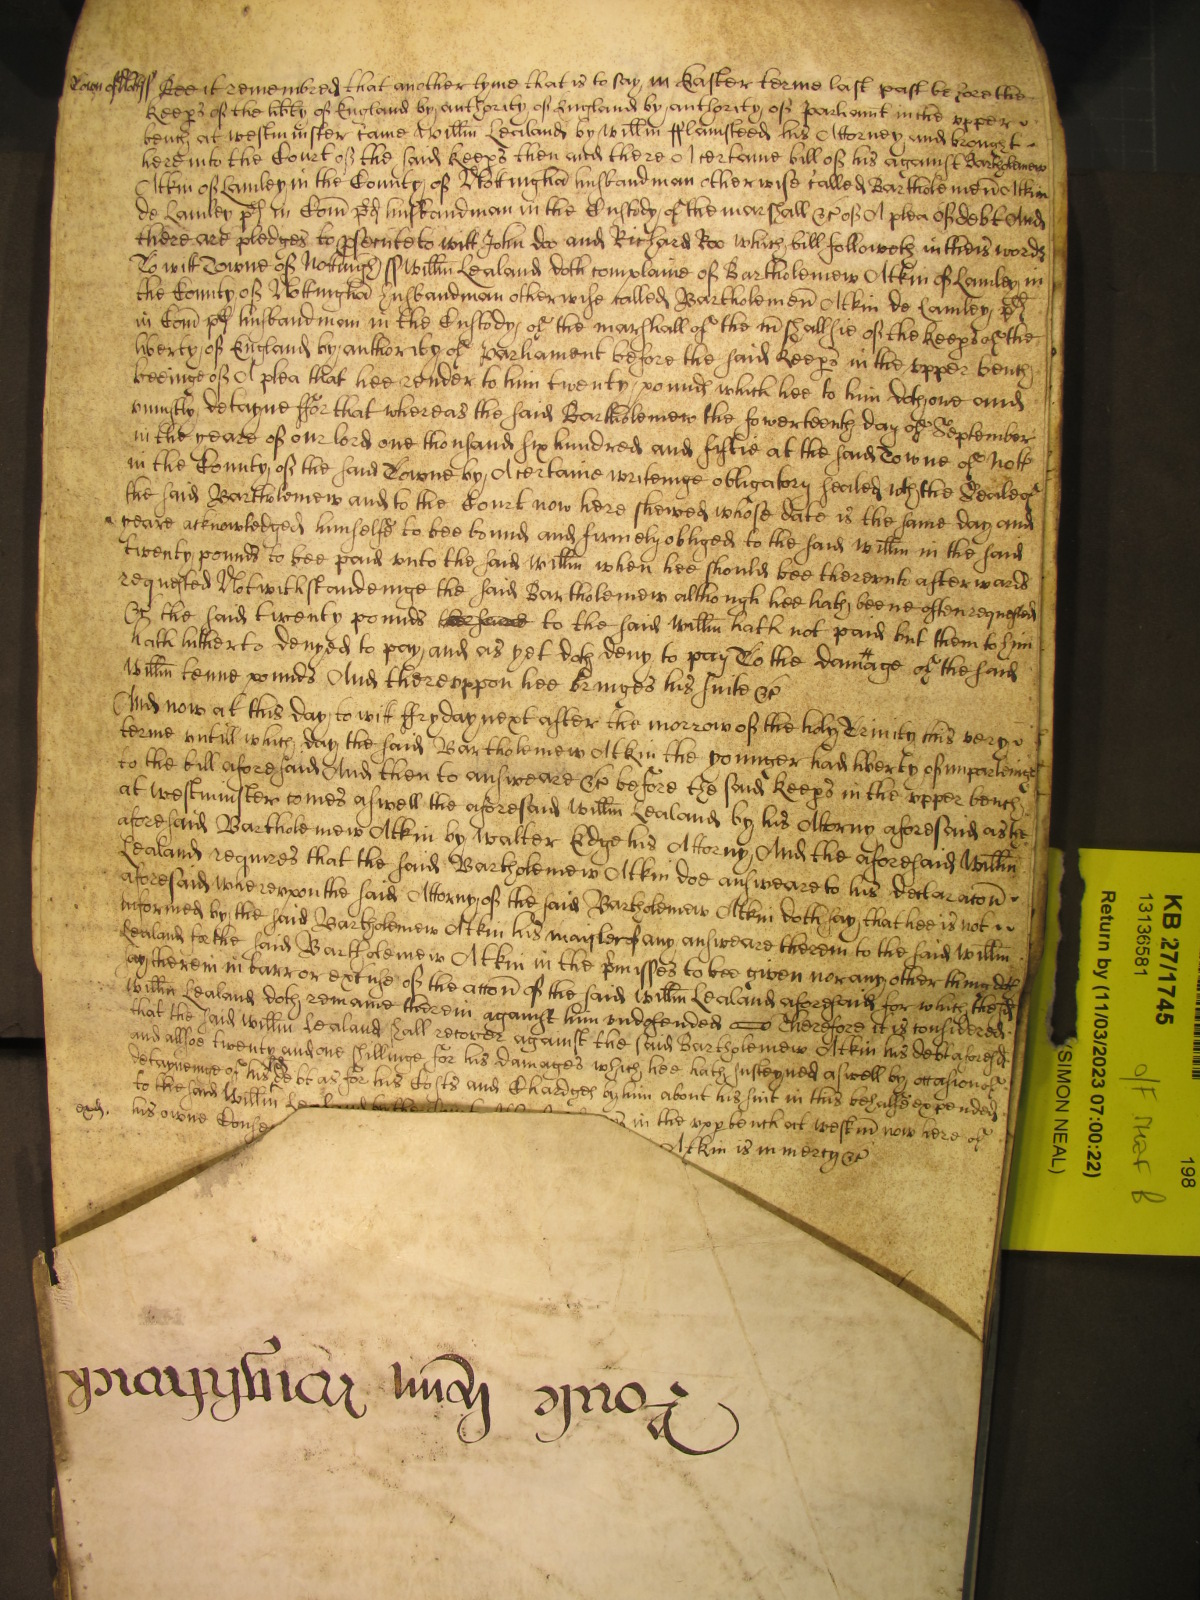 Town of Nott ss Bee it remembred that another tyme that is to say in Easter terme last past before the
Keeps of the libty of England by authority of England by authority of Parliamt in the upper
bench at westminster came Willm Lealand by Willm fflamsteed his Attorney and brought
here into the Court of the said Keeps then and there A certaine bill of his against Bartholomew
Atkin of Lamley in the County of Nottingha husbandman otherwise called Bartholemew Atkin
de Lamley pd in Com pd husbandman in the Custody of the marshall &c of A plea of debt And
there are pledges to psecute to witt John doo and Richard Roo which bill followeth in theis words
To witt Towne of Nottingh ss Willm Lealand doth complaine of Bartholemew Atkin of Lamley in
the County of Nottingha husbandman otherwise called Bartholemew Atkin de Lamley pd
in Com pd husbandman in the Custody of the marshall of the mshallsie of the Keeps of the
liberty of England by authority of Parliament before the said Keeps in the upper bench
beeinge of A plea that hee render to him twenty pounds which hee to him doth owe and
uniustly detayne ffor that whereas the said Bartholemew the fowerteenth day of September
in the yeare of our lord one thousand six hundred and fiftie at the said Towne of Nott
in the County of the said Towne by A certaine writeinge obligatory sealed wth the Seale of
the said Bartholemew and to the Court now here shewed whose date is the same day and
yeare acknowledged himselfe to bee bound and firmely obliged to the said Willm in the said
twenty pounds to bee paid unto the said Willm when hee should bee thereunto afterwards
requested Notwithstandeinge the said Bartholemew although hee hath beene often requested
&c the said twenty pounds to the said Willm hath not paid but them to him
hath hitherto denyed to pay and as yet doth deny to pay To the damage of the said
Willm tenne pounds And thereuppon hee bringes his suite &c
And now at this day to wit ffryday next after the morrow of the holy Trinity this very
terme untill which day the said Bartholemew Atkin the younger had liberty of imparleinge
to the bill aforesaid And then to answeare &c before the said Keeps in the upper bench
at Westminster comes aswell the aforesaid Willm Lealand by his Attorny aforesaid as the
aforesaid Bartholemew Atkin by Walter Edge his Attorny And the aforesaid Willm
Lealand requires that the said Bartholemew Atkin doe answeare to his declaracon
aforesaid whereuppon the said Attorny of the said Bartholemew Atkin doth say that hee is not
informed by the said Bartholemew Atkin his mayster of any answeare therein to the said Willm
Lealand for the said Bartholemew Atkin in the pmisses to bee given nor any other thing doth
say therein in barr or excuse of the accon of the said Willm Lealand aforesaid for which the sd
Willm Lealand doth remaine therein against him undefended Therefore it is considered
that the said Willm Lealand shall recover against the said Bartholemew Atkin his debt aforesd
and allsoe twenty and one shillinge for his damages which hee hath susteyned aswell by occasion of
deteyneinge of his sd debt as for his Costs and Chardges by him about his suit in this behalfe expended
to the said Willm Lealand by the in the upp bench at westm now here of
exd. his owne Conse Atkin is in mercy &c
Poule lynn Wrightwick
KB 27/1745
13136581
Return by (11/03/2023 07:00:22)
(SIMON NEAL)
198